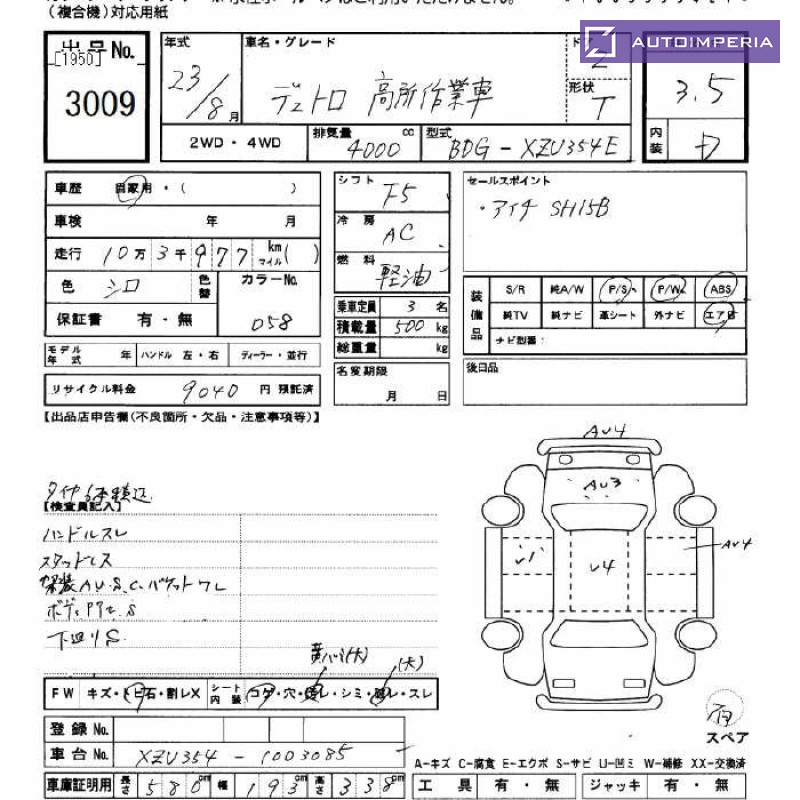 (複合機)対応用紙
AUTOIMPERIA
出品No. [1950] 3009
年式 23/8月
車名・グレード デュトロ 高所作業車
ドア 2
形状 T
3.5
内装 D
2WD・4WD
排気量 4000 cc
型式 BDG-XZU354E
車歴 自家用・( )
車検 年 月
走行 10万3千977 km マイル( )
色 シロ 色替
カラーNo. 058
保証書 有・無
モデル年式 年 ハンドル 左・右 ディーラー・並行
リサイクル料金 9040 円 預託済
シフト F5
冷房 AC
燃料 軽油
乗車定員 3 名
積載量 500 kg
総重量 kg
名変期限 月 日
セールスポイント
・アイチ SH15B
装備品 S/R 純A/W P/S P/W ABS
純TV 純ナビ 革シート 外ナビ エアB
ナビ型番:
後日品
【出品店申告欄(不良箇所・欠品・注意事項等)】
タイヤ6本積込
【検査員記入】
ハンドルスレ
スタッドレス
架装AU.S.C.バケットワレ
下廻りS
黄バミ(大)
(大)
FW キズ・トビ石・割レX シート内装 コゲ・穴・破レ・シミ・スレ
登録No.
車台No. XZU354-1003085
車庫証明用 長さ 580cm 幅 193cm 高さ 338cm
AU4
AU3
U1
U4
AU4
スペア
A-キズ C-腐食 E-エクボ S-サビ U-凹ミ W-補修 XX-交換済
工具 有・無 ジャッキ 有・無